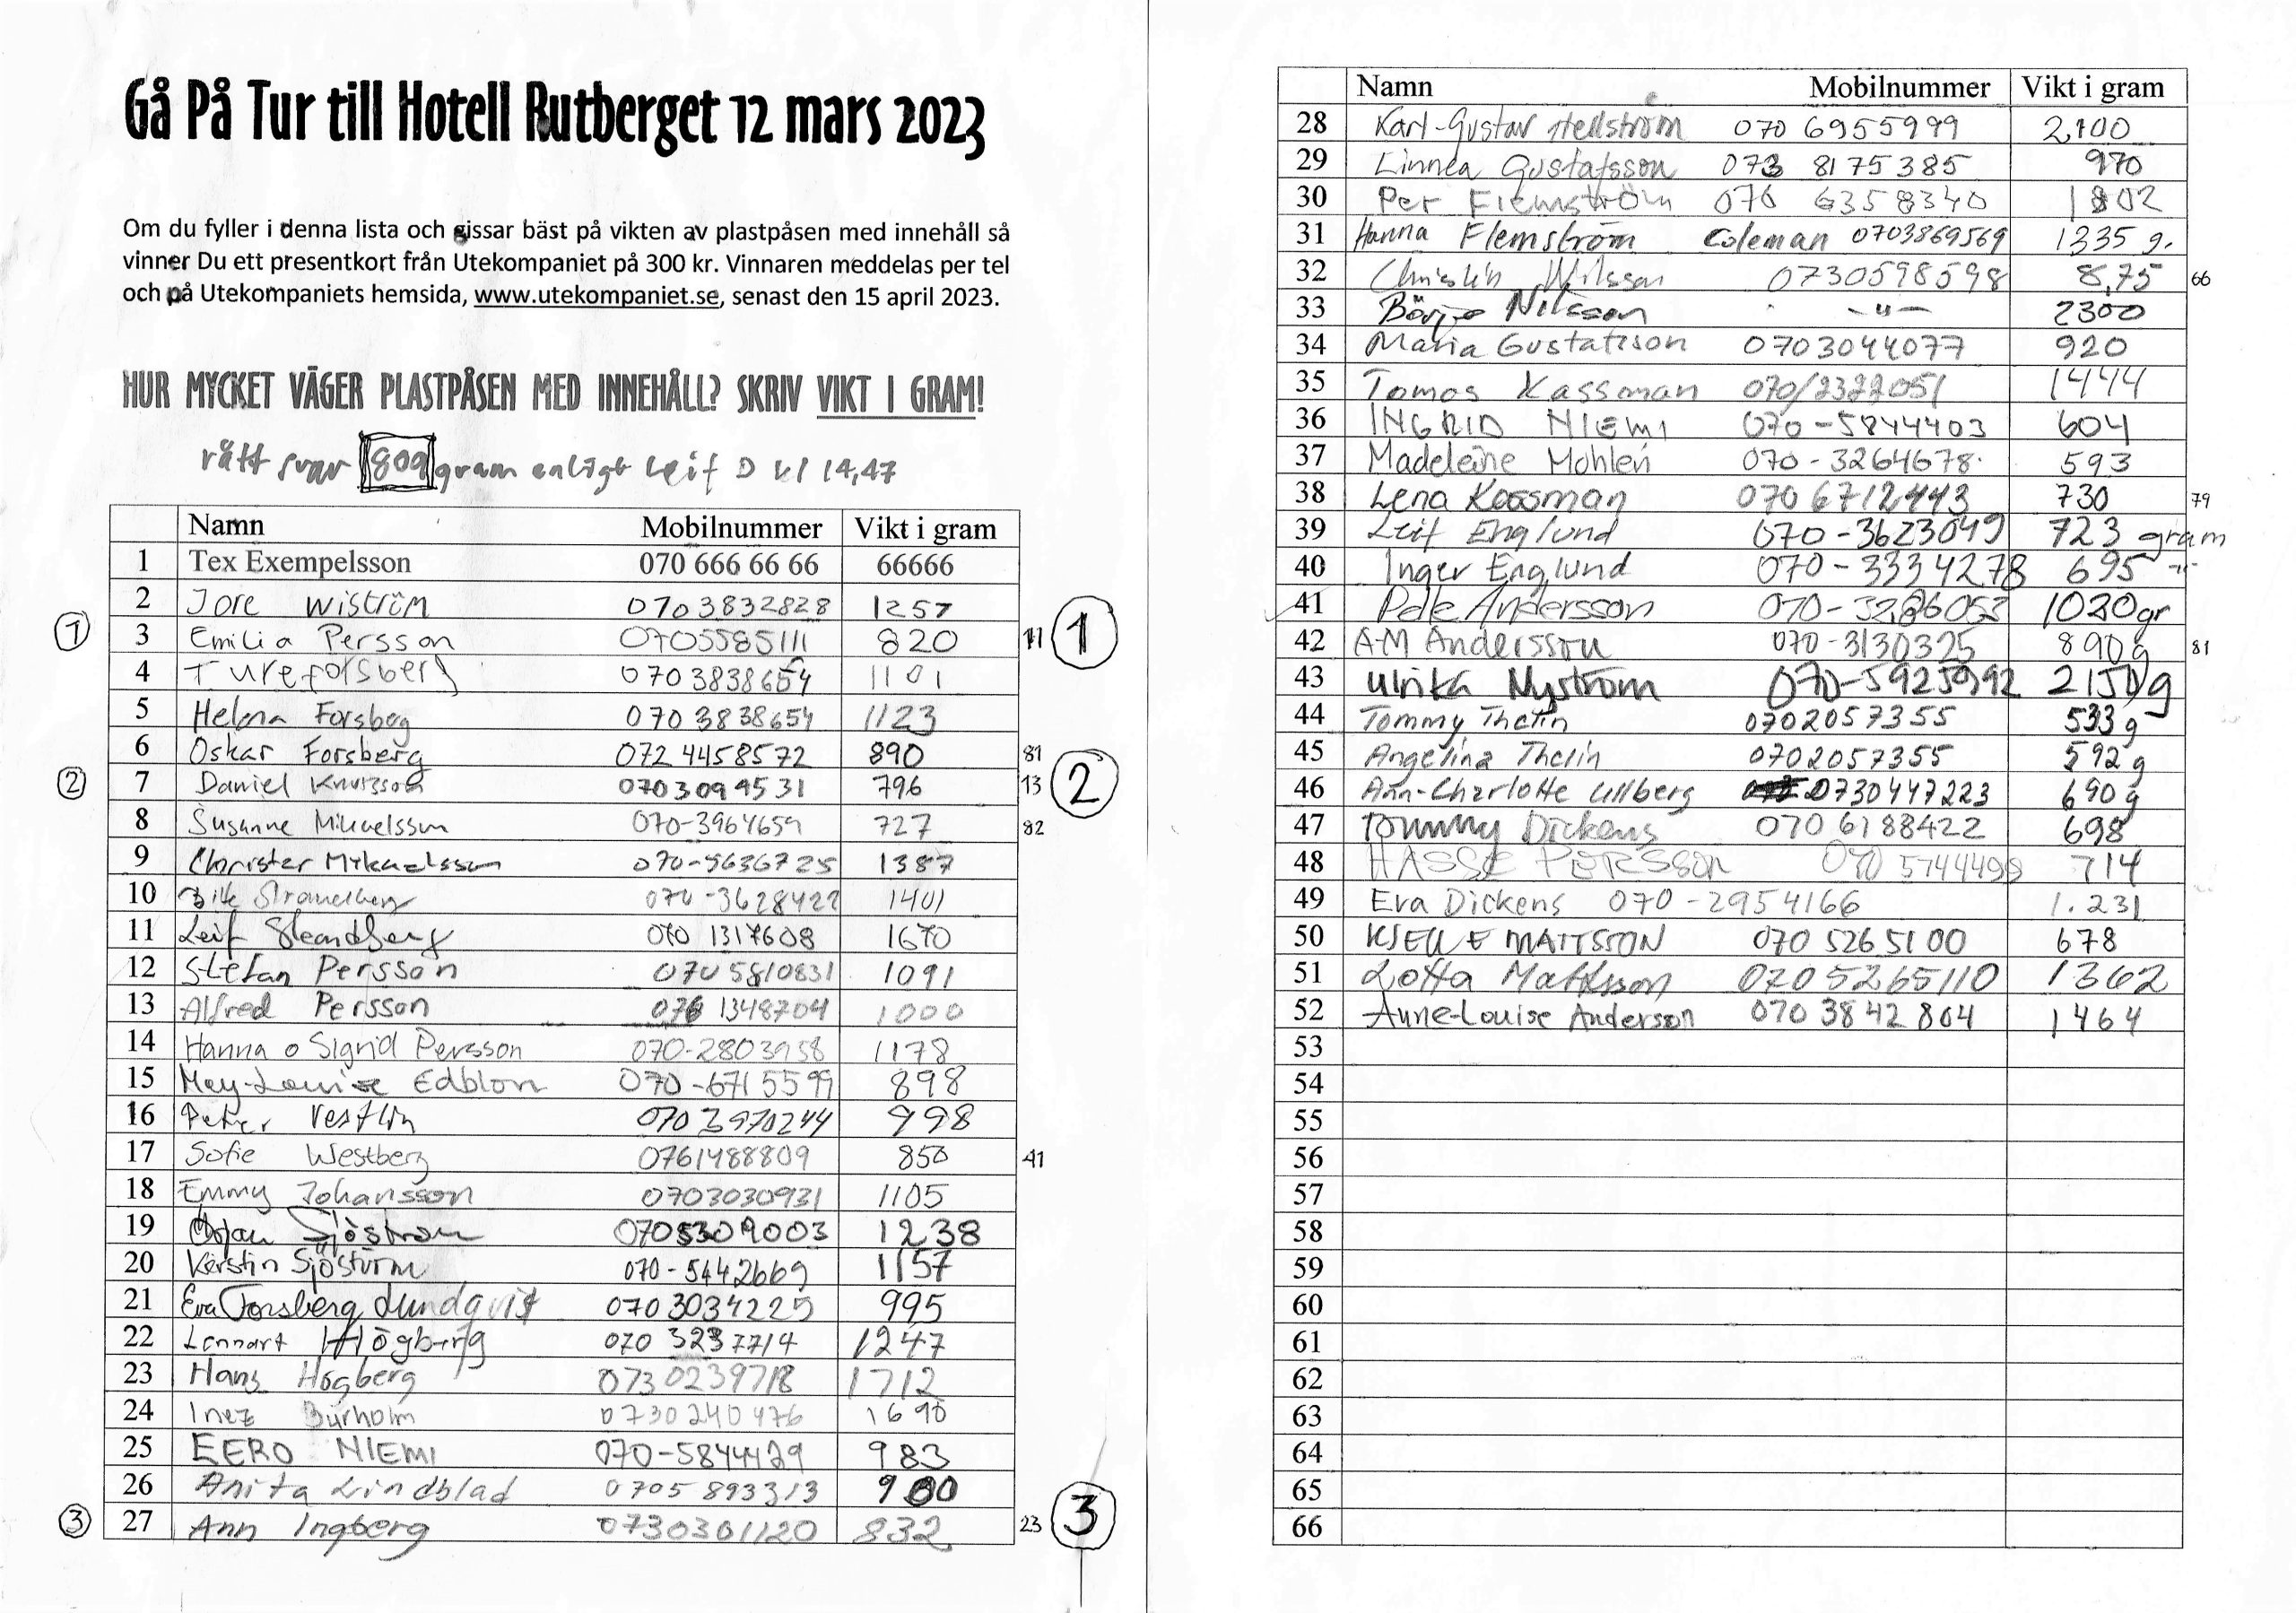 Gå På Tur till Hotell Rutberget 12 mars 2023
Om du fyller i denna lista och gissar bäst på vikten av plastpåsen med innehåll så
vinner Du ett presentkort från Utekompaniet på 300 kr. Vinnaren meddelas per tel
och på Utekompaniets hemsida, www.utekompaniet.se, senast den 15 april 2023.
HUR MYCKET VÄGER PLASTPÅSEN MED INNEHÅLL? SKRIV VIKT I GRAM!
rätt svar 809 gram enligt Leif D kl 14,47
Namn Mobilnummer Vikt i gram
1 Tex Exempelsson 070 666 66 66 66666
2 Tore Wiström 070 3832828 1257
① 3 Emilia Persson 0705585111 820 11 ①
4 Ture Forsberg 070 3838654 1101
5 Helena Forsbeg 070 3838654 1123
6 Oskar Forsberg 072 4458572 890 81
② 7 Daniel Knutsson 070 309 95 31 796 13 ②
8 Susanne Mikaelsson 070-3964659 727 82
9 Christer Mikaelsson 070-5636725 1387
10 Strandberg 070-3628422 1401
11 Leif Strandberg 070 1317608 1670
12 Stefan Persson 070 5810831 1091
13 Alfred Persson 076 1348704 1000
14 Hanna o Sigrid Persson 070-2803958 1178
15 May-Louise Edblom 070-6715599 898
16 Peter Vestlin 070 3970244 998
17 Sofie Westberg 0761488809 850 41
18 Emmy Johansson 0703030931 1105
19 Örjan Sjöström 0705309003 1238
20 Kerstin Sjöström 070-5442669 1157
21 Eva Forsberg Lundqvist 070 3034225 995
22 Lennart Högberg 070 3237714 1247
23 Hans Högberg 073 0239718 1712
24 Inez Burholm 0730240476 1690
25 EERO NIEMI 070-5844429 983
26 Anita Lindblad 0705 893313 900
③ 27 Ann Ingberg 0730301120 832 23 ③
Namn Mobilnummer Vikt i gram
28 Karl-Gustav Hellström 070 6955999 2,100
29 Linnea Gustafsson 073 8175385 970
30 Per Flemström 070 6358340 1802
31 Hanna Flemström Coleman 0703869569 1335 g.
32 Christin Nilsson 0730598598 8,75 66
33 Börje Nilsson -"- 2300
34 Maria Gustafsson 0703044077 920
35 Tomas Kassman 070/2322051 1444
36 INGRID NIEMI 070-5844403 604
37 Madeleine Mohlén 070-3264678 593
38 Lena Kassman 070 6712443 730 79
39 Leif Englund 070-3623049 723 gram
40 Inger Englund 070-3334278 695 -"-
41 Pelle Andersson 070-3286053 1020gr
42 A-M Andersson 070-3130325 890g 81
43 Ulrika Nyström 070-5925992 2150g
44 Tommy Thelin 0702057355 533 g
45 Angelina Thelin 0702057355 592 g
46 Ann-Charlotte Ullberg 0730447223 690 g
47 Tommy Dickens 070 6188422 698
48 HASSE PERSSON 070 5744498 714
49 Eva Dickens 070-2954166 1.231
50 KJELLE MATTSSON 070 5265100 678
51 Lotta Mattsson 070 5265110 1362
52 Anne-Louise Anderson 070 3842804 1464
53
54
55
56
57
58
59
60
61
62
63
64
65
66